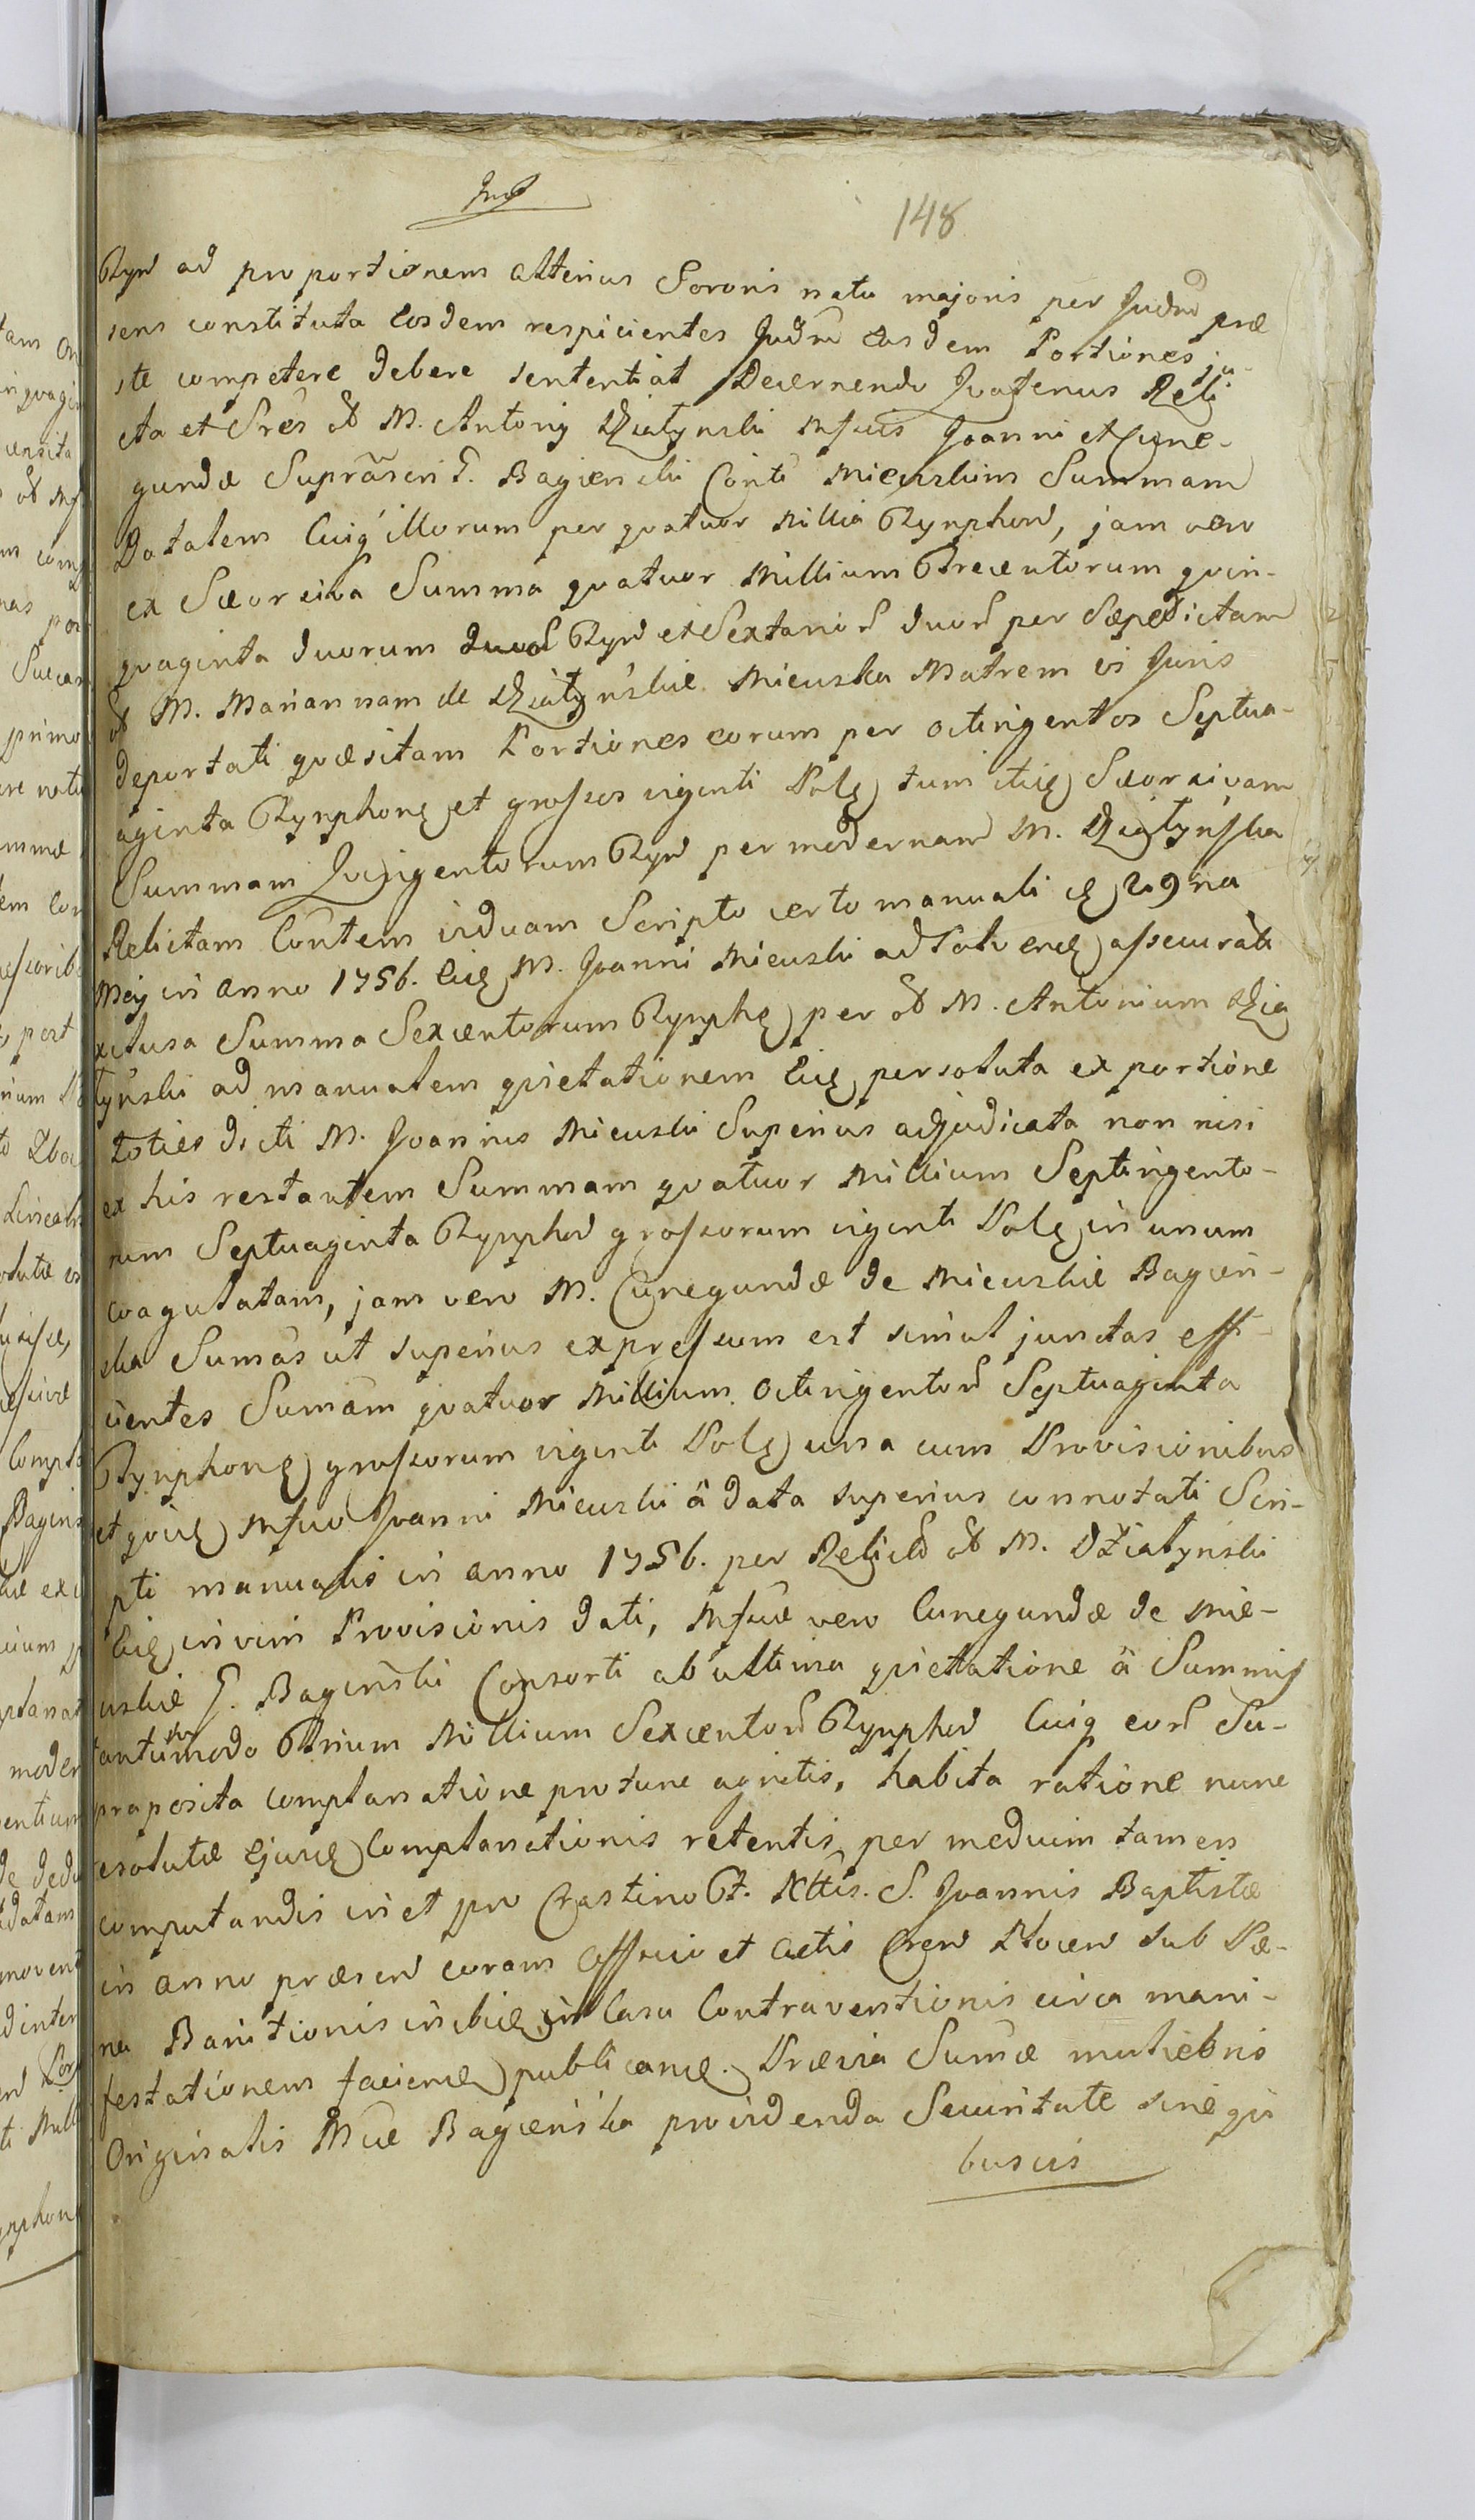 148
Rynd ad proportionem alterius Sororis natu majoris per Judm præ
sens constituta Eosdem respicientes Judm Easdem Portiones ju-
ste competere debere sententiat Decernendo Qvatenus Reli
cta et Sres ol M. Antonij Działynski Mfcis Joanni et Cune-
gundæ Suprascri G. Bagienski Conti Mieuskim Summam
Dotalem Cuiq illorum per qvatuor Millia Tynphor, jam vero
ex Sæorsiva Summa qvatuor Millium Trecentorum qvin-
qvaginta duorum duor Tyn et Sextanior duor per Sæpedictam
ol M. Mariannam de Działynskie Mieuska Matrem vi Juris
deportati qvæsitam Portiones eorum per octingentos Septua-
aginta Tynphone et grossos viginti Pole tum itie Sæorsivam
Summam Qvingentorum Tyn per modernam M. Działynska
Relictam Contem viduam Scripto certo manuali de 29na
Maij in anno 1756. Eide M. Joanni Mieuski ad Solvende assecurata
exclusa Summa Sexcentorum Tynphe per ol M. Antonium Dzia
tynski ad manualem qvietationem Eide persoluta ex portione
toties dicti M. Joannis Mieuski Superius adjudicata non nisi
ex his restantem Summam qvatuor Millium Septingento-
rum Septuaginta Tynphor grossorum viginti Pole in unum
coagulatam, jam vero M. Cunegundæ de Mieuskie Bagien-
ska Sumas ut superius expressum est simul junctas effi-
cientes Sumam qvatuor Millium octingentor Septuaginta
Tynphone grossorum viginti Pole una cum Provisionibus
et qvide Mfco Joanni Mieuski à data superius connotati Scri-
pti manualis in anno 1756. per Relictd ol M. Działynski
Eide in vim Provisionis dati, Mfcæ vero Cunegundæ de Mie-
uskie G. Baginski Consorti ab ultima qvietatione à Summis
tantumodo Trium Millium Sexcentor Tynphor Cuiq eor Su-
praposita complanatione protunc agnitis, habita ratione nunc
esolutæ Ejusde Complanationis retentis per medium tamen
computandis in et pro Crastino F. Nttis. S. Joannis Baptistæ
in anno præsen coram Officio et Actis Cren Plocen sub Pæ-
na Banitionis in hic in Casu Contraventionis circa mani-
festationem faciende publicande. Prævia Sumæ muliebris
Originalis Mcæ Bagienska providenda Securitate sine qvi
busvis